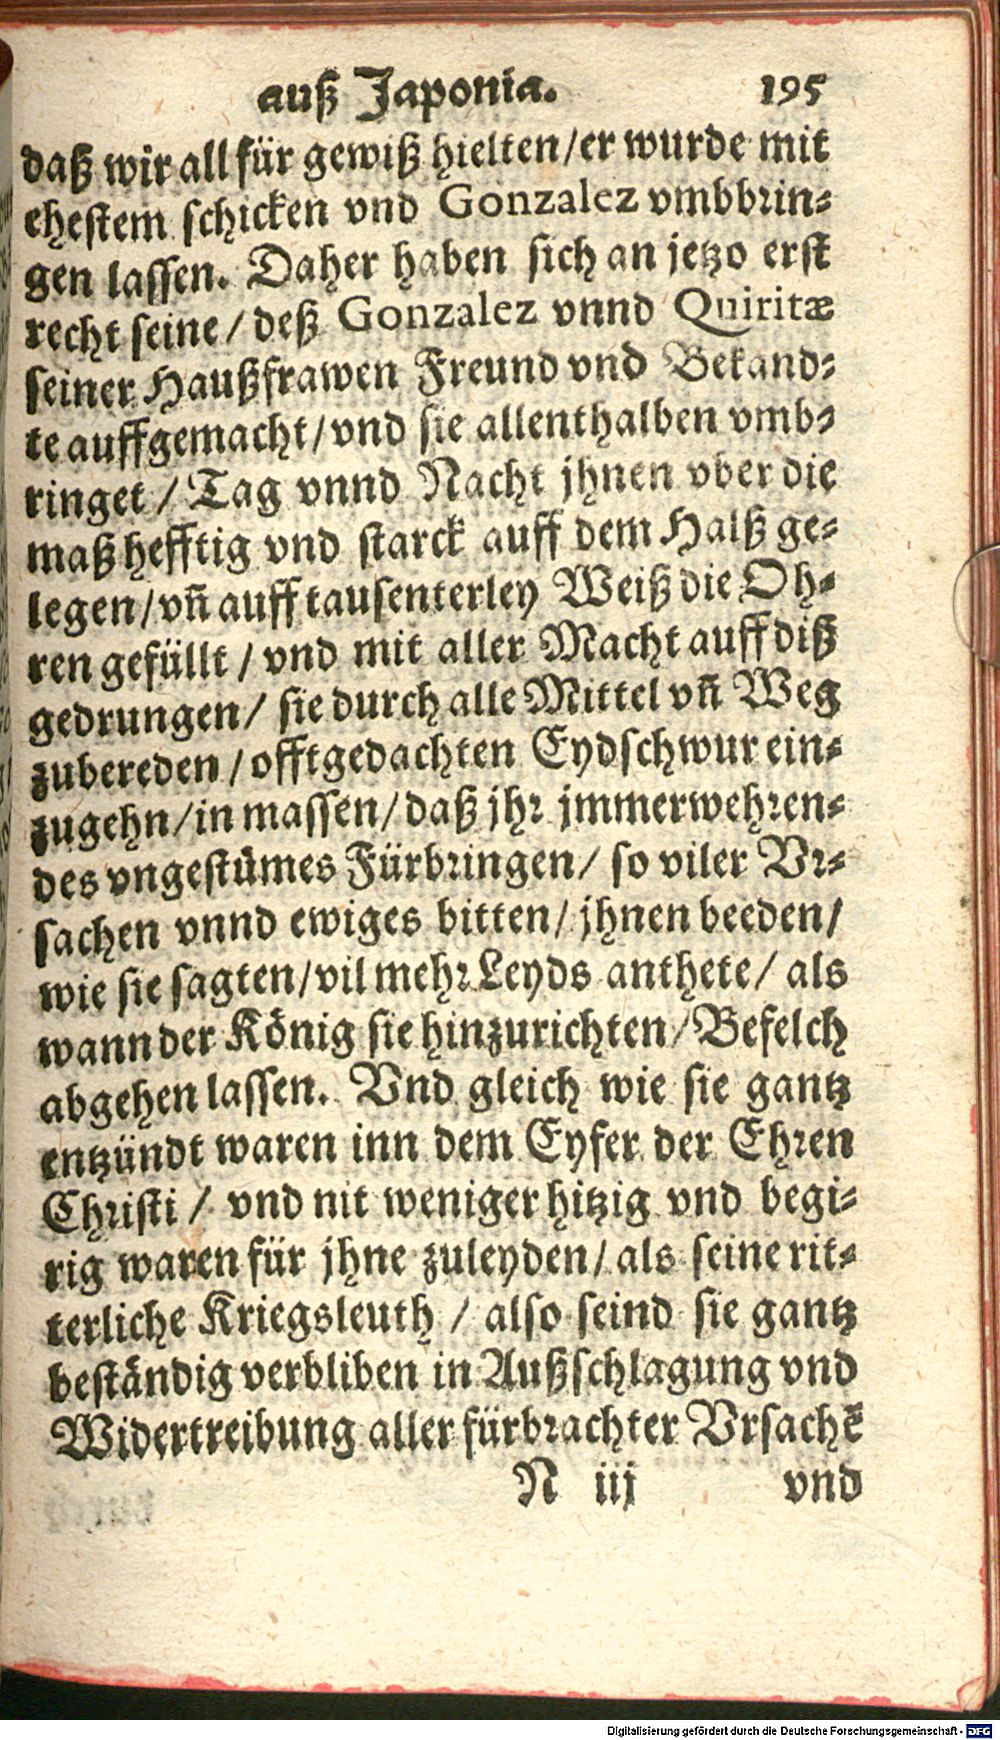 auß Japonia. 195
daß wir all für gewiß hielten/er wurde mit
ehestem schicken vnd Gonzalez vmbbrin-
gen lassen. Daher haben sich an jetzo erst
recht seine/ deß Gonzalez vnnd Quiritæ
seiner Haußfrawen Freund vnd Bekand-
te auffgemacht/vnd sie allenthalben vmb-
ringet / Tag vnnd Nacht jhnen vber die
maß hefftig vnd starck auff dem Halß ge-
legen/vñ auff tausenterley Weiß die Oh-
ren gefüllt / vnd mit aller Macht auff diß
gedrungen/ sie durch alle Mittel vñ Weg
zubereden / offtgedachten Eydschwur ein-
zugehn/in massen/ daß jhr jmmerwehren-
des vngestümes Fürbringen/ so viler Vr-
sachen vnnd ewiges bitten/ jhnen beeden/
wie sie sagten/vil mehr Leyds anthete/ als
wann der König sie hinzurichten/Befelch
abgehen lassen. Vnd gleich wie sie gantz
entzündt waren inn dem Eyfer der Ehren
Christi / vnd nit weniger hitzig vnd begi-
rig waren für jhne zuleyden/ als seine rit-
terliche Kriegsleuth / also seind sie gantz
beständig verbliben in Außschlagung vnd
Widertreibung aller fürbrachter Vrsachē
N iij vnd
Digitalisierung gefördert durch die Deutsche Forschungsgemeinschaft - DFG